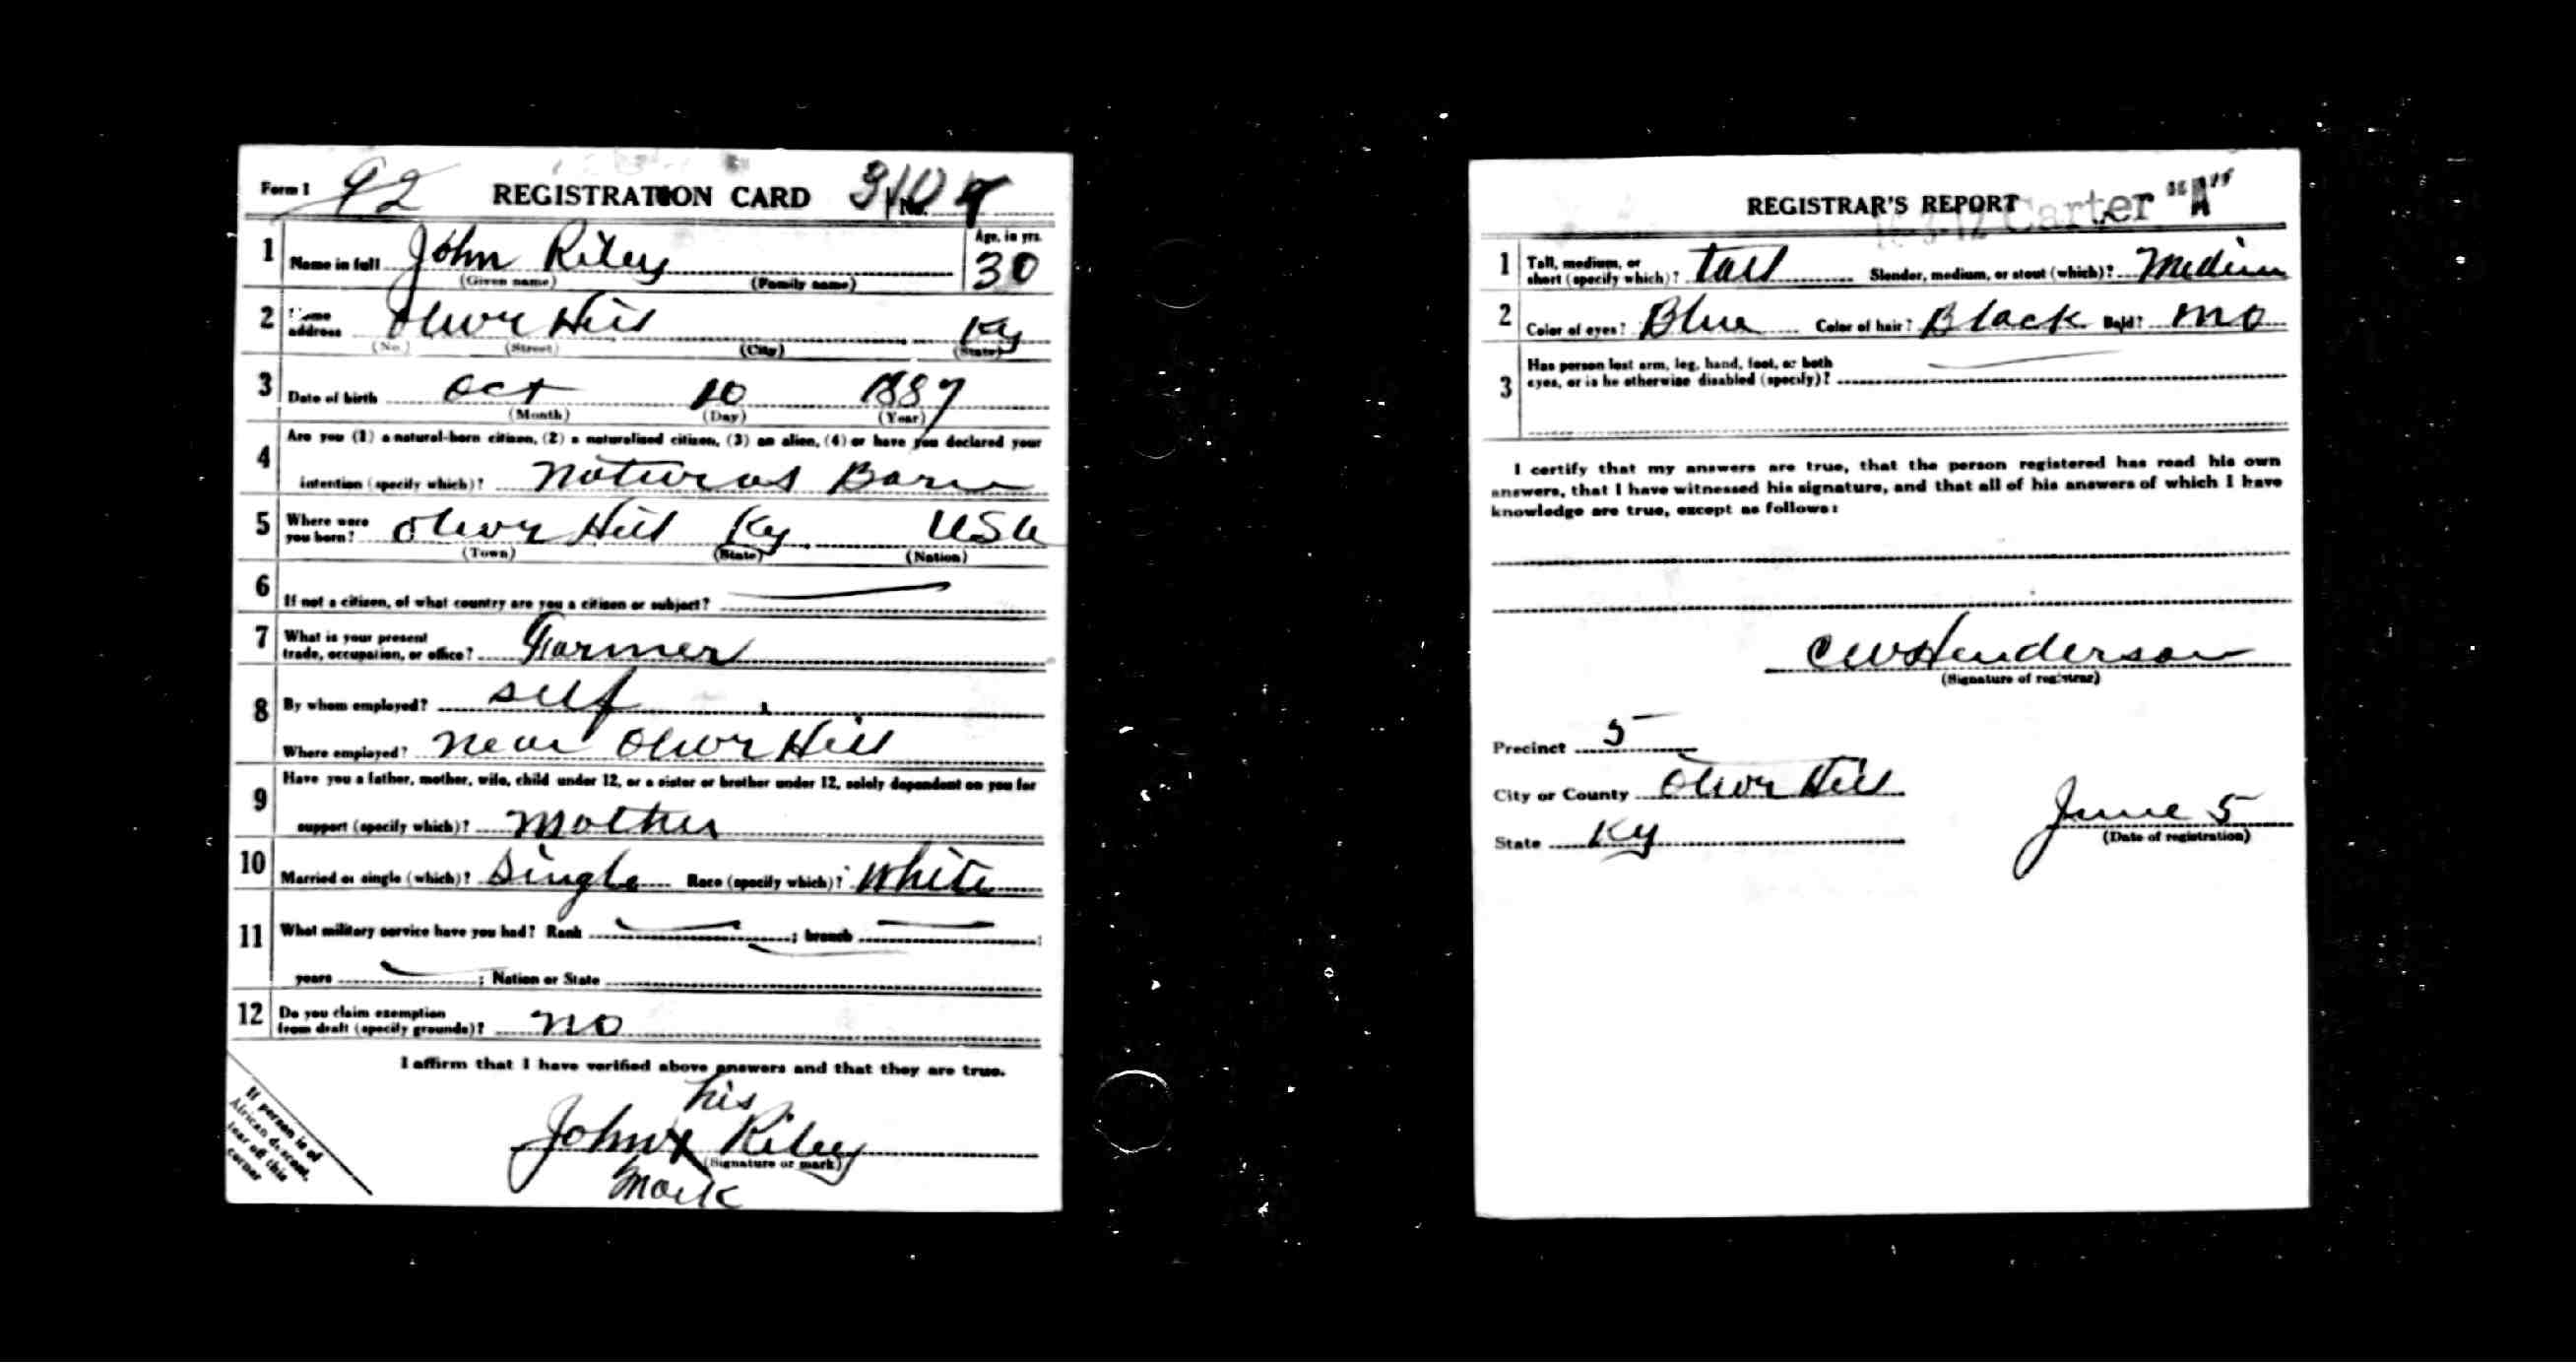 Form 1 92 REGISTRATION CARD No.
1 Name in full John Riley Age, in yrs. 30
(Given name) (Family name)
2 Home address Oliver Hill Ky
(No.) (Street) (City) (State)
3 Date of birth Oct 10 1887
(Month) (Day) (Year)
4 Are you (1) a natural-born citizen, (2) a naturalized citizen, (3) an alien, (4) or have you declared your
intention (specify which)? Natural Born
5 Where were you born? Oliver Hill Ky USA
(Town) (State) (Nation)
6 If not a citizen, of what country are you a citizen or subject?
7 What is your present
trade, occupation, or office? Farmer
8 By whom employed? self
Where employed? near Oliver Hill
9 Have you a father, mother, wife, child under 12, or a sister or brother under 12, solely dependent on you for
support (specify which)? Mother
10 Married or single (which)? Single Race (specify which)? White
11 What military service have you had? Rank ; branch ;
years ; Nation or State
12 Do you claim exemption
from draft (specify grounds)? no
I affirm that I have verified above answers and that they are true.
his
John x Riley
(Signature or mark)
mark
If person is of
African descent,
tear off this
corner
REGISTRAR'S REPORT Carter "A"
1 Tall, medium, or
short (specify which)? tall Slender, medium, or stout (which)? Medium
2 Color of eyes? Blue Color of hair? Black Bald? no
3 Has person lost arm, leg, hand, foot, or both
eyes, or is he otherwise disabled (specify)?
I certify that my answers are true, that the person registered has read his own
answers, that I have witnessed his signature, and that all of his answers of which I have
knowledge are true, except as follows:
CW Henderson
(Signature of registrar)
Precinct 5
City or County Oliver Hill
State Ky June 5
(Date of registration)